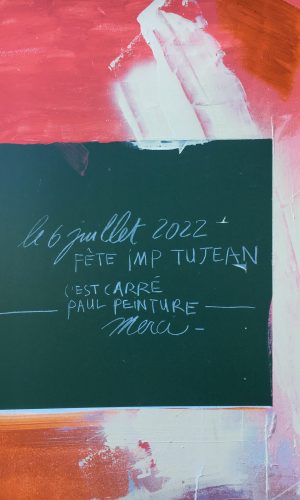 le 6 juillet 2022
FÊTE IMP TUJEAN
C'EST CARRÉ
PAUL PEINTURE
Merci